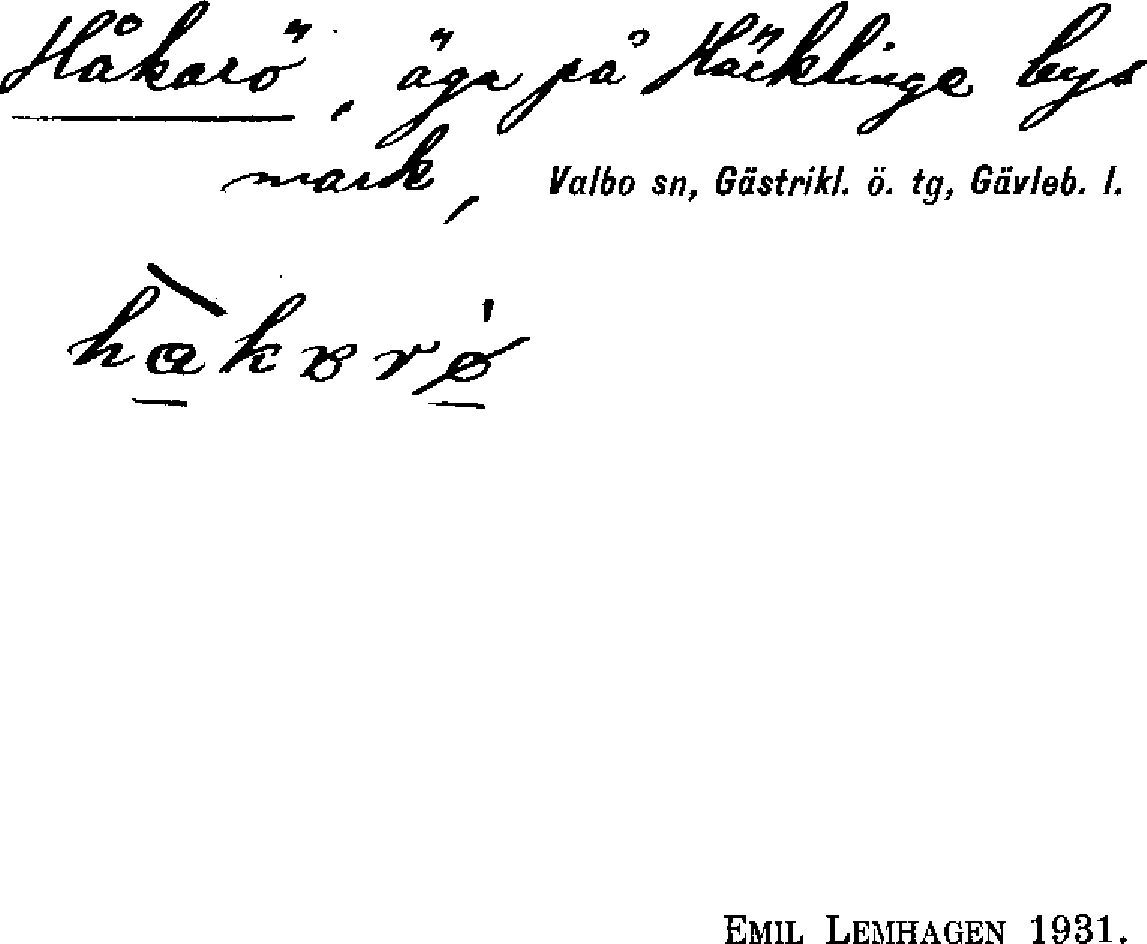 Håkarö, äga på Häcklinge bys
mark, Valbo sn, Gästrikl. ö. tg, Gävleb. l.
EMIL LEMHAGEN 1931.